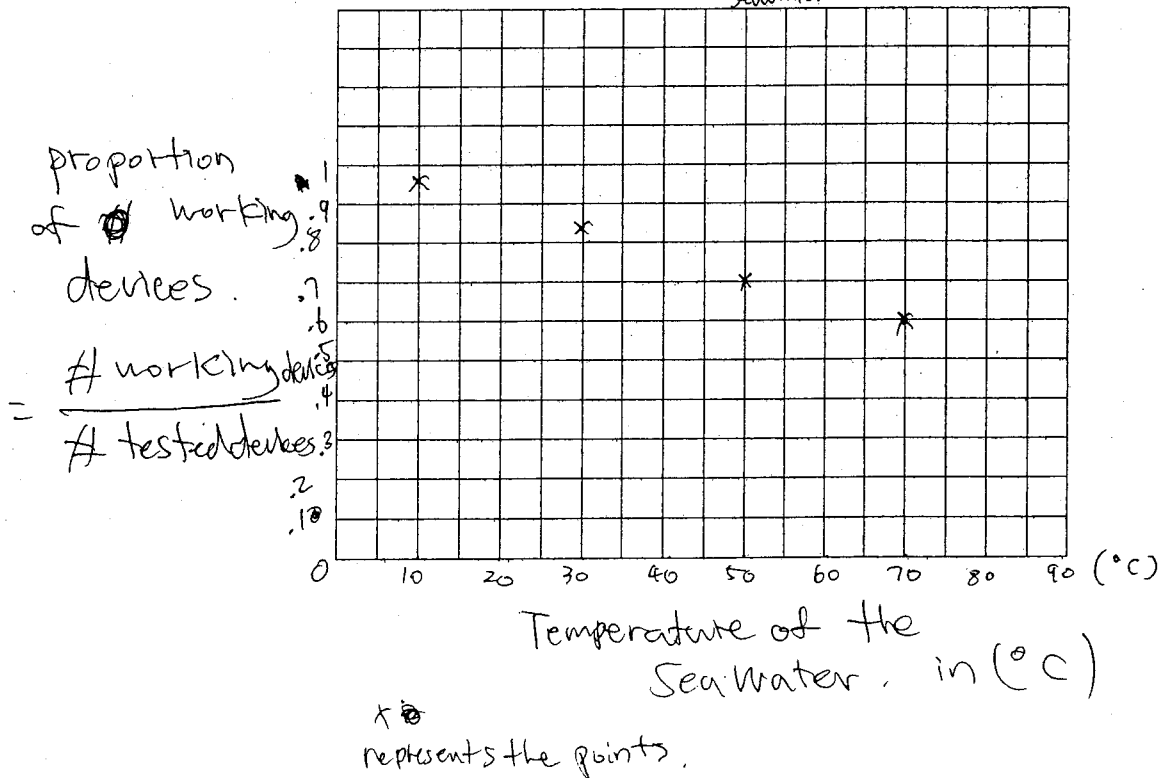 proportion
of working
devices.
= # working devices
# tested devices
1
.9
.8
.7
.6
.5
.4
.3
.2
.1
0 10 20 30 40 50 60 70 80 90 (°C)
Temperature of the
Sea water. in (°C)
x
represents the points.